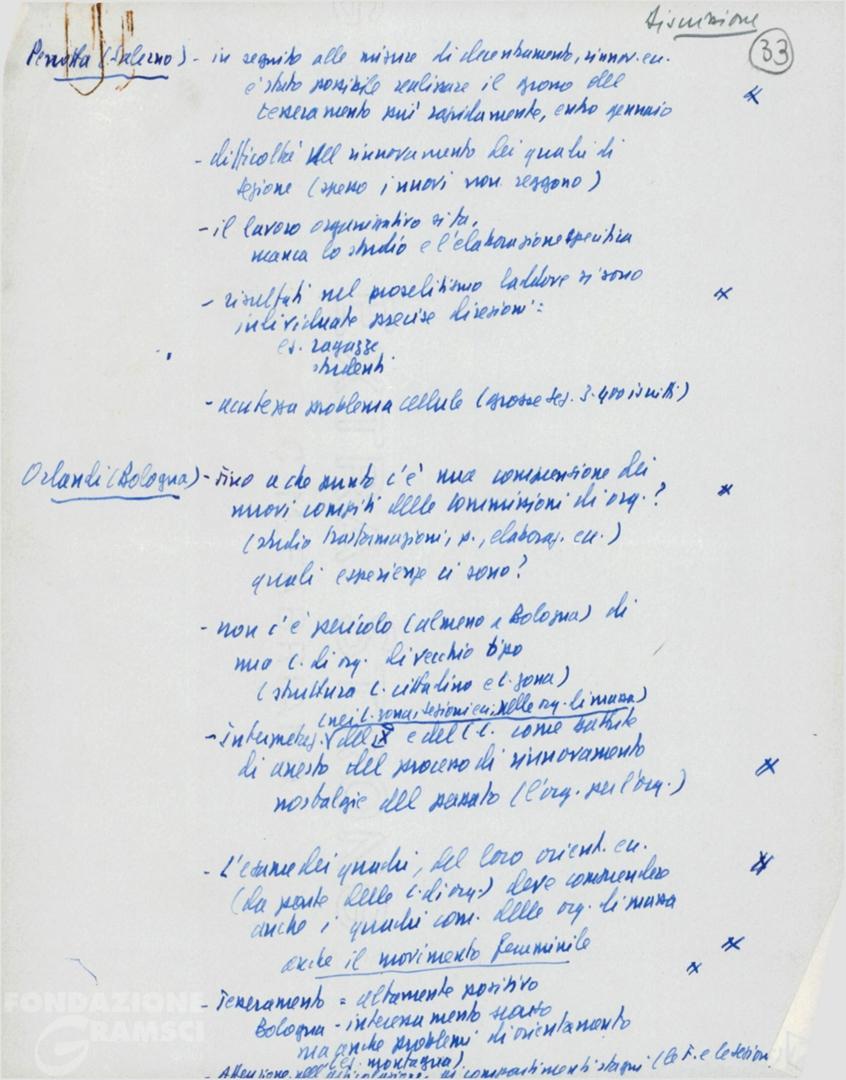 Discussione
33
Perrotta (Salerno) - in seguito alle misure di decentramento, rinnov. ecc.
è stato possibile realizzare il grosso del
tesseramento più rapidamente, entro gennaio
- difficoltà nel rinnovamento dei quadri di
sezione (spesso i nuovi non reggono)
- il lavoro organizzativo si fa,
manca lo studio e l'elaborazione specifica
- risultati nel proselitismo laddove si sono
individuate precise direzioni:
es. ragazze
studenti
- acutezza problema cellule (grosse sez. 3-400 iscritti)
Orlandi (Bologna) - Fino a che punto c'è una comprensione dei
nuovi compiti delle commissioni di org.?
(studio trasformazioni, p., elaboraz. ecc.)
quali esperienze ci sono?
- non c'è pericolo (almeno a Bologna) di
una C. di org. di vecchio tipo
(struttura C. cittadino e C. zona)
(nei C. zona, sezioni ecc., nelle org. di massa)
- Interpretaz. del X e del C.C. come battute
di arresto del processo di rinnovamento
nostalgie del passato (l'org. per l'org.)
- L'esame dei quadri, del loro orient. ecc.
(da parte delle C. di org.) deve comprendere
anche i quadri com. delle org. di massa
anche il movimento femminile
- Tesseramento = altamente positivo
Bologna - interessamento scarso
ma anche problemi di orientamento
(es. montagna)
- Attenzione nell'articolazione ai compartimenti stagni (le F. e le sezioni
FONDAZIONE
GRAMSCI